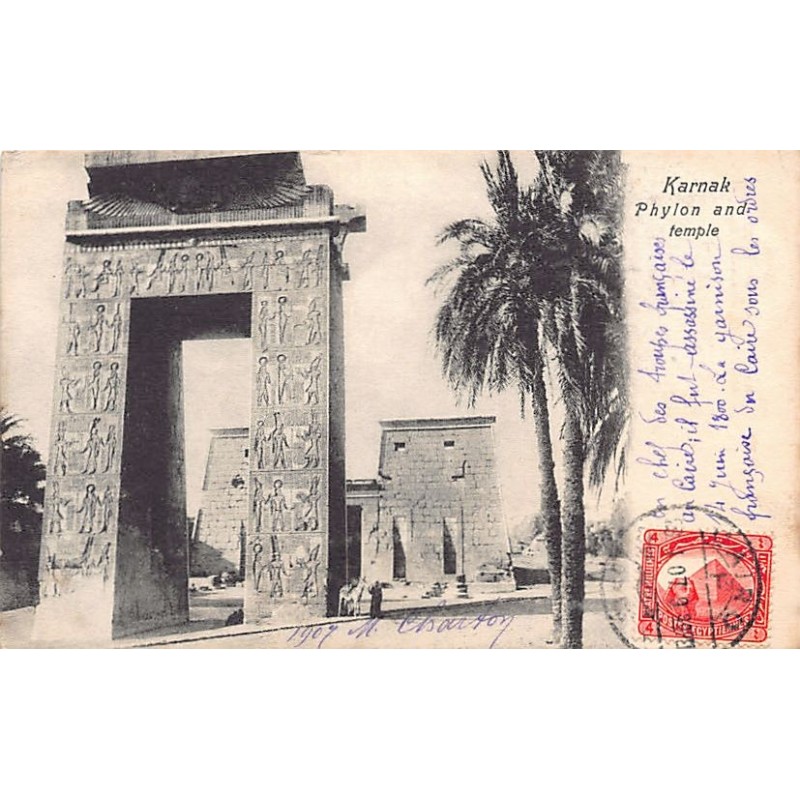 Karnak
Phylon and
temple
en chef des troupes françaises
au Caire; il fut assassiné le
14 Juin 1800. La garnison
française du Caire sous les ordres
1907 M. Charron
4 4
4 4